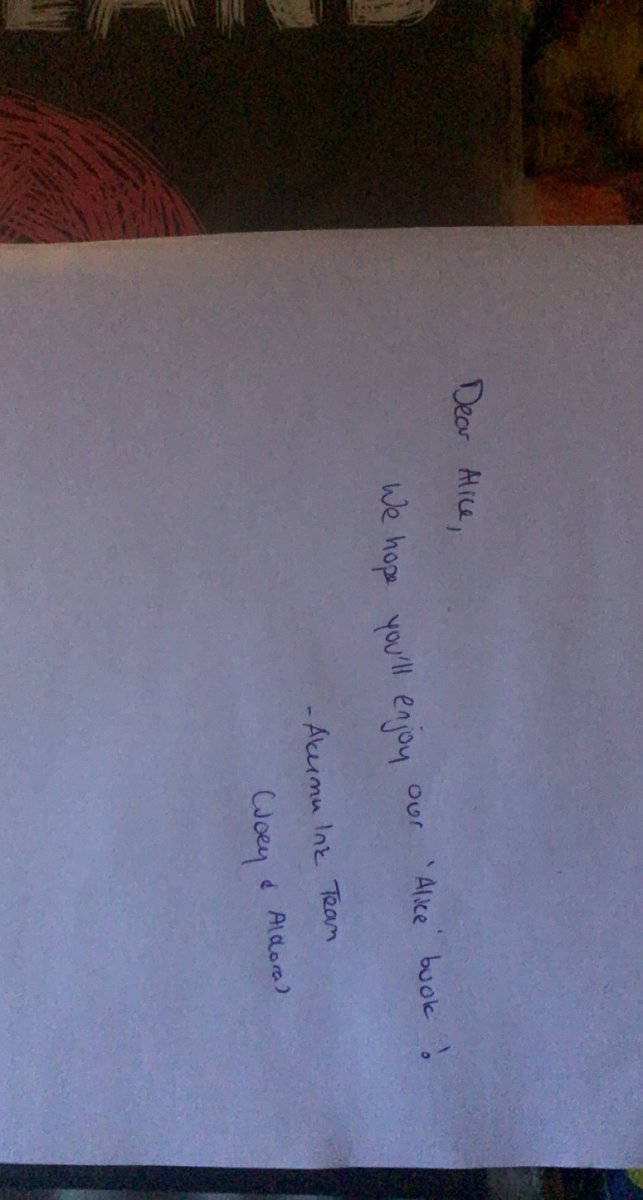 Dear Alice,
We hope you'll enjoy our 'Alice' book!
- Akumu Ink Team
(Joey & Aldora)